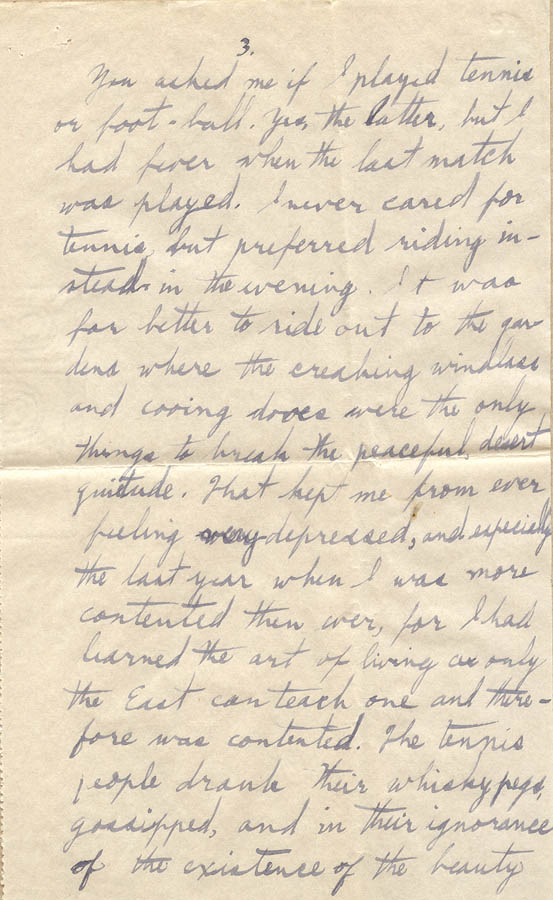 3.
You asked me if I played tennis
or foot-ball. Yes, the latter, but I
had fever when the last match
was played. I never cared for
tennis, but preferred riding in-
stead in the evening. It was
far better to ride out to the gar
dens where the creaking windlass
and cooing doves were the only
things to break the peaceful, desert
quietude. That kept me from ever
feeling very depressed, and especially
the last year when I was more
contented then ever, for I had
learned the art of living as only
the East can teach one and there-
fore was contented. The tennis
people drank their whisky pegs,
gossipped, and in their ignorance
of the existence of the beauty